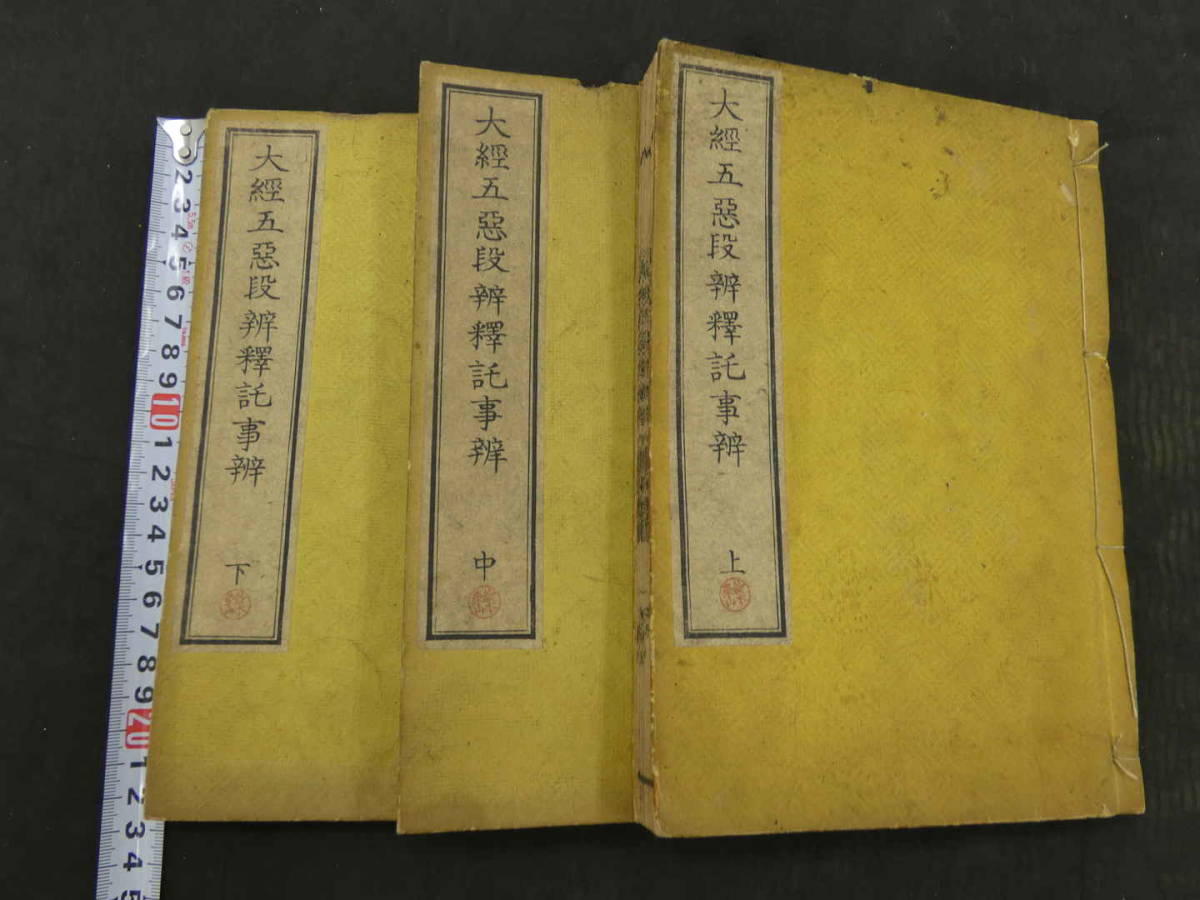 大經五惡段辨釋託事辨
上
大經五惡段辨釋託事辨
中
大經五惡段辨釋託事辨
下
2 3 4 5 6 7 8 9 10 1 2 3 4 5 6 7 8 9 20 1 2 3 4 5